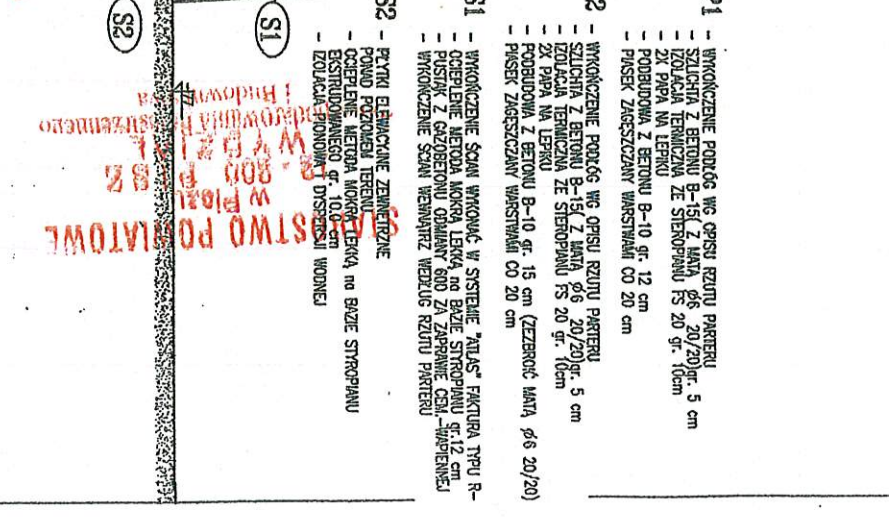 P1 - WYKOŃCZENIE PODŁÓG WG OPISU RZUTU PARTERU
- SZLICHTA Z BETONU B-15( Z MATĄ ø6 20/20)gr. 5 cm
- IZOLACJA TERMICZNA ZE STEROPIANU FS 20 gr. 10cm
- 2X PAPA NA LEPIKU
- PODBUDOWA Z BETONU B-10 gr. 12 cm
- PIASEK ZAGĘSZCZANY WARSTWAMI CO 20 cm
2 - WYKOŃCZENIE PODŁÓG WG OPISU RZUTU PARTERU
- SZLICHTA Z BETONU B-15( Z MATĄ ø6 20/20)gr. 5 cm
- IZOLACJA TERMICZNA ZE STEROPIANU FS 20 gr. 10cm
- 2X PAPA NA LEPIKU
- PODBUDOWA Z BETONU B-10 gr. 15 cm (ZEZBROIĆ MATĄ ø6 20/20)
- PIASEK ZAGĘSZCZANY WARSTWAMI CO 20 cm
S1 - WYKOŃCZENIE ŚCIAN WYKONAĆ W SYSTEMIE "ATLAS" FAKTURA TYPU R-
- OCIEPLENIE METODA MOKRĄ LEKKĄ na BAZIE STYROPIANU gr.12 cm
- PUSTAK Z GAZOBETONU ODMIANY 600 ZA ZAPRAWIE CEM.-WAPIENNEJ
- WYKOŃCZENIE ŚCIAN WEWNĄTRZ WEDŁUG RZUTU PARTERU
S2 - PŁYTKI ELEWACYJNE ZEWNĘTRZNE
PONAD POZIOMEM TERENU
- OCIEPLENIE METODA MOKRĄ LEKKĄ na BAZIE STYROPIANU
EKSTRUDOWANEGO gr. 10.0 cm
- IZOLACJA PIONOWA Z DYSPERSJI WODNEJ
S1
S2
STAROSTWO POWIATOWE
w Piszu
12-200 PISZ
WYDZIAŁ
i Budownictwa